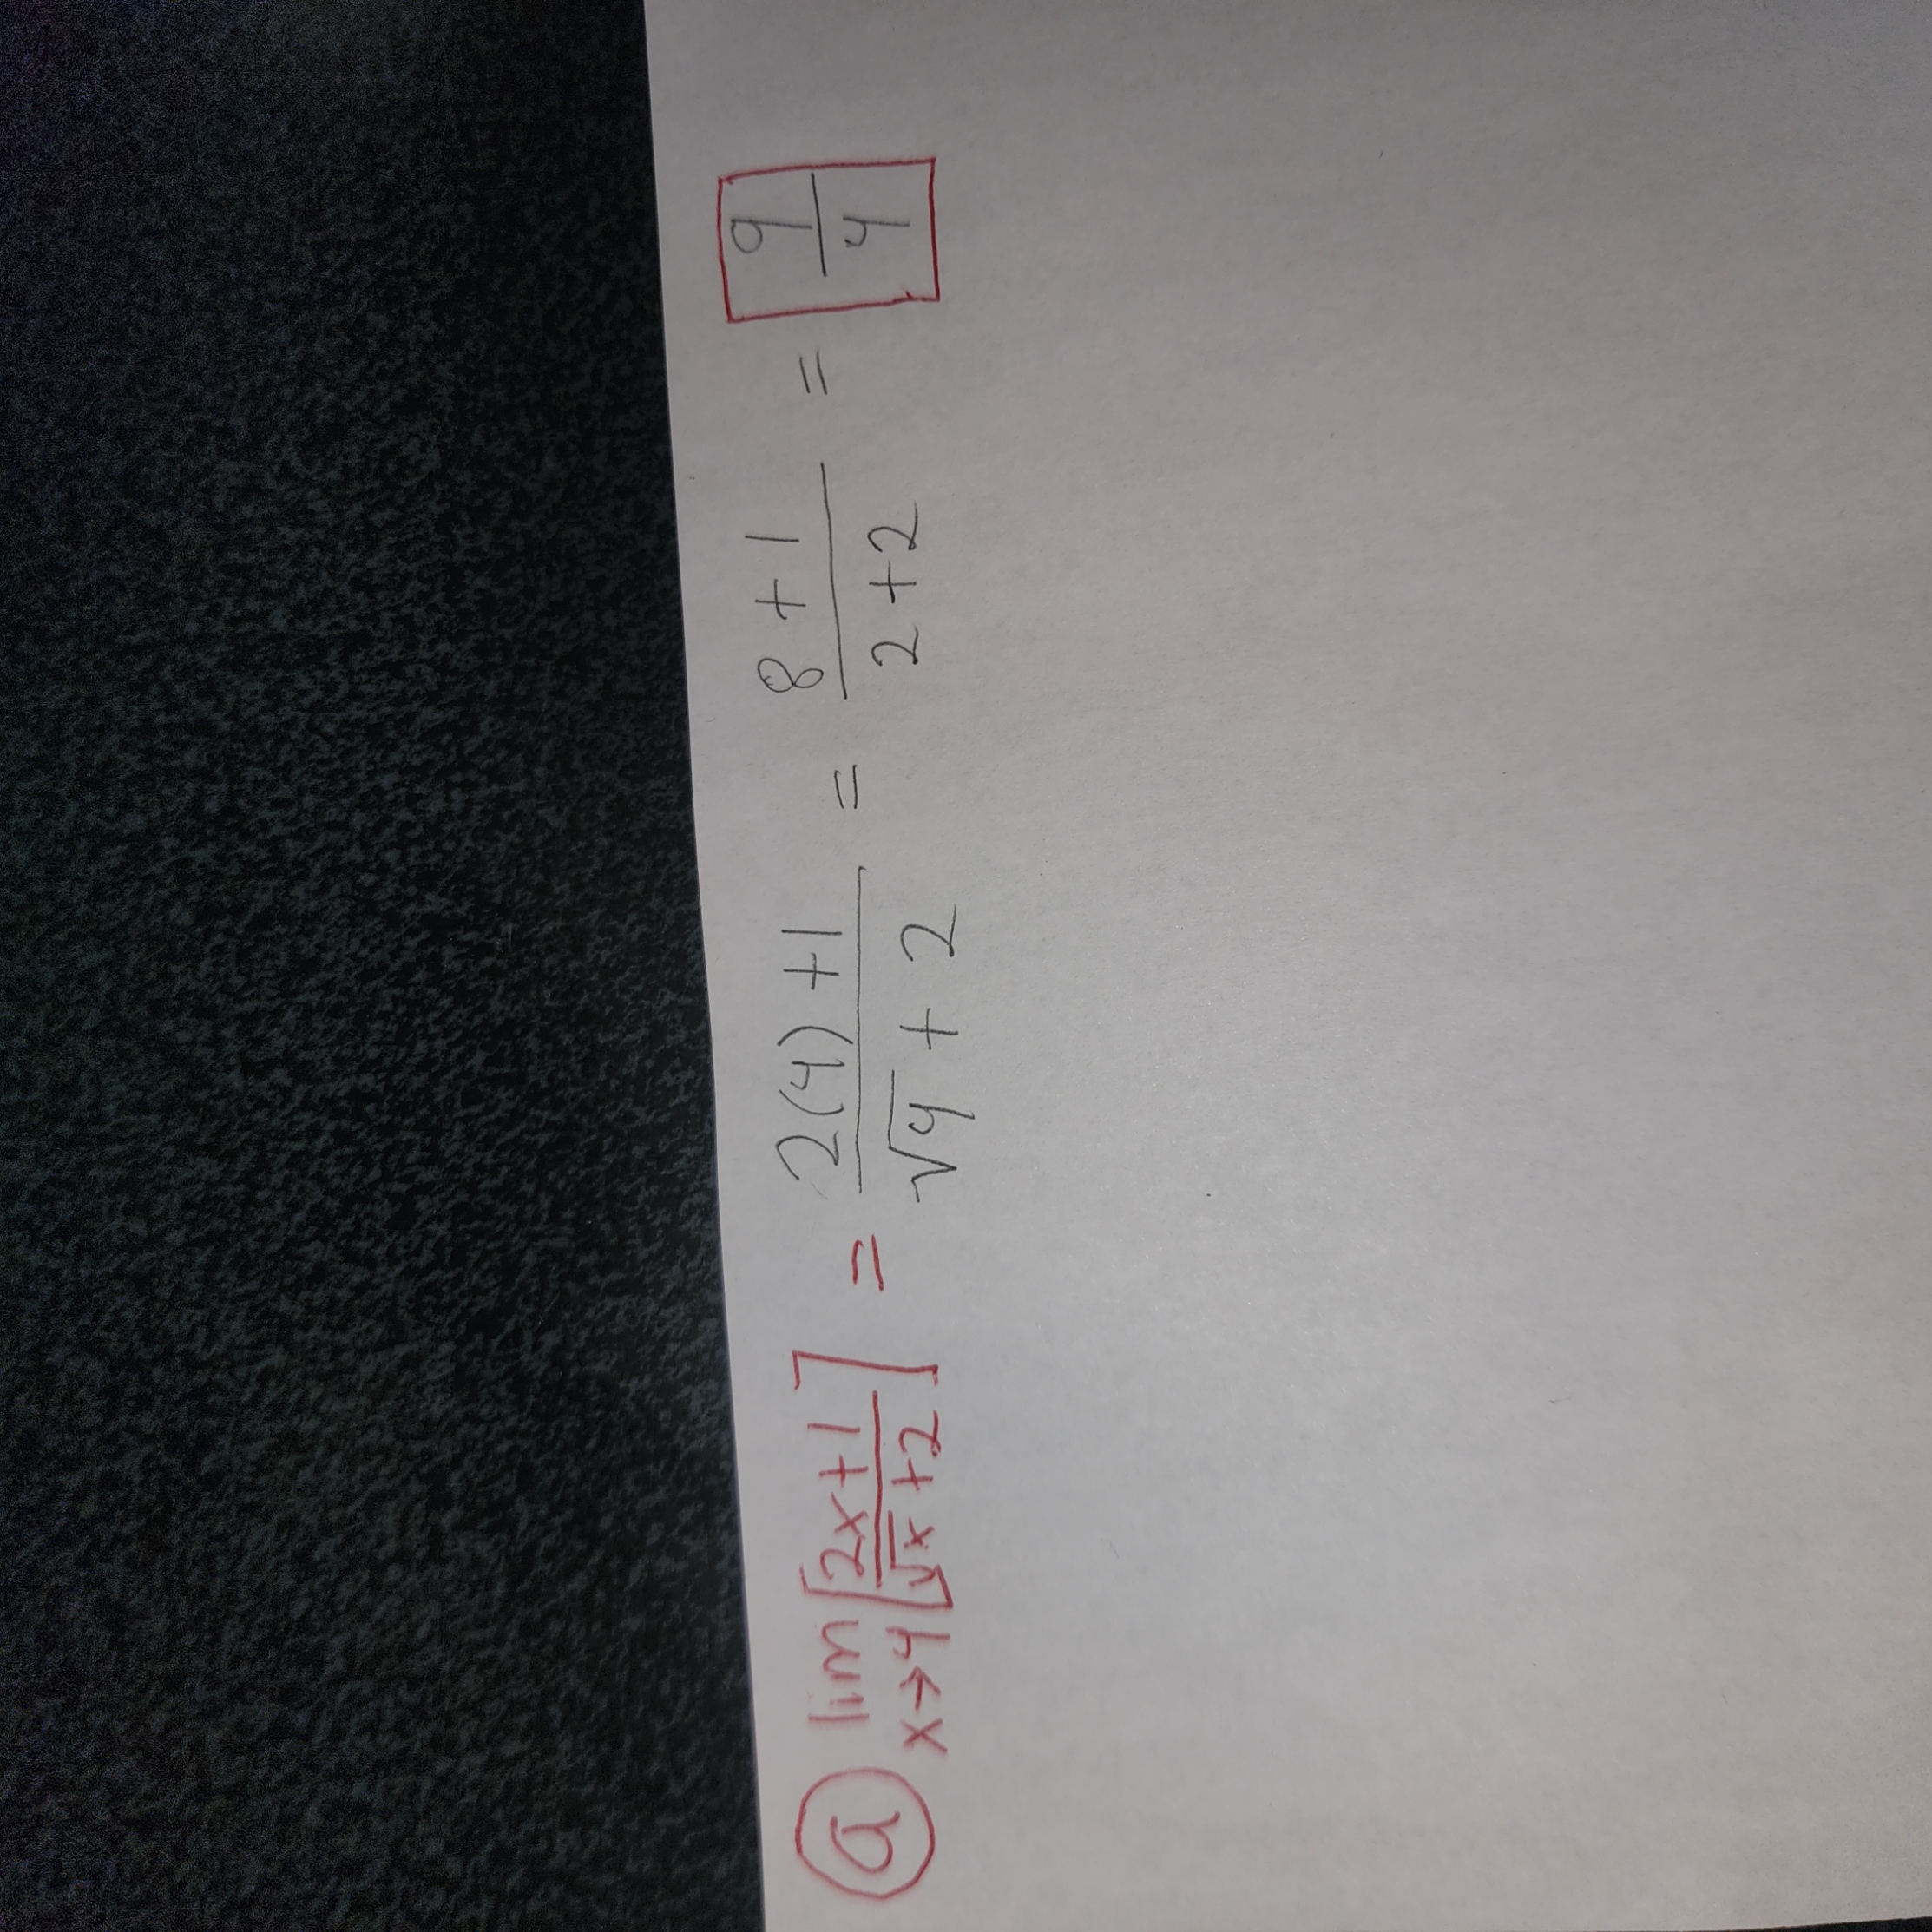 ⓐ lim x→4 [(2x+1)/(√x+2)] = (2(4)+1)/(√4+2) = (8+1)/(2+2) = 9/4